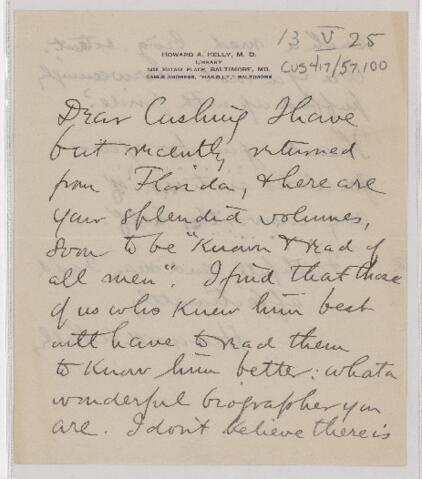 HOWARD A. KELLY, M. D.
LIBRARY
1406 EUTAW PLACE, BALTIMORE, MD.
CABLE ADDRESS, "HAKELLY," BALTIMORE
13 V 25
CUS417/57.100
Dear Cushing I have
but recently returned
from Florida, & here are
your splendid volumes,
soon to be "known & read of
all men". I find that those
of us who knew him best
will have to read them
to know him better: what a
wonderful biographer you
are. I don't believe there is